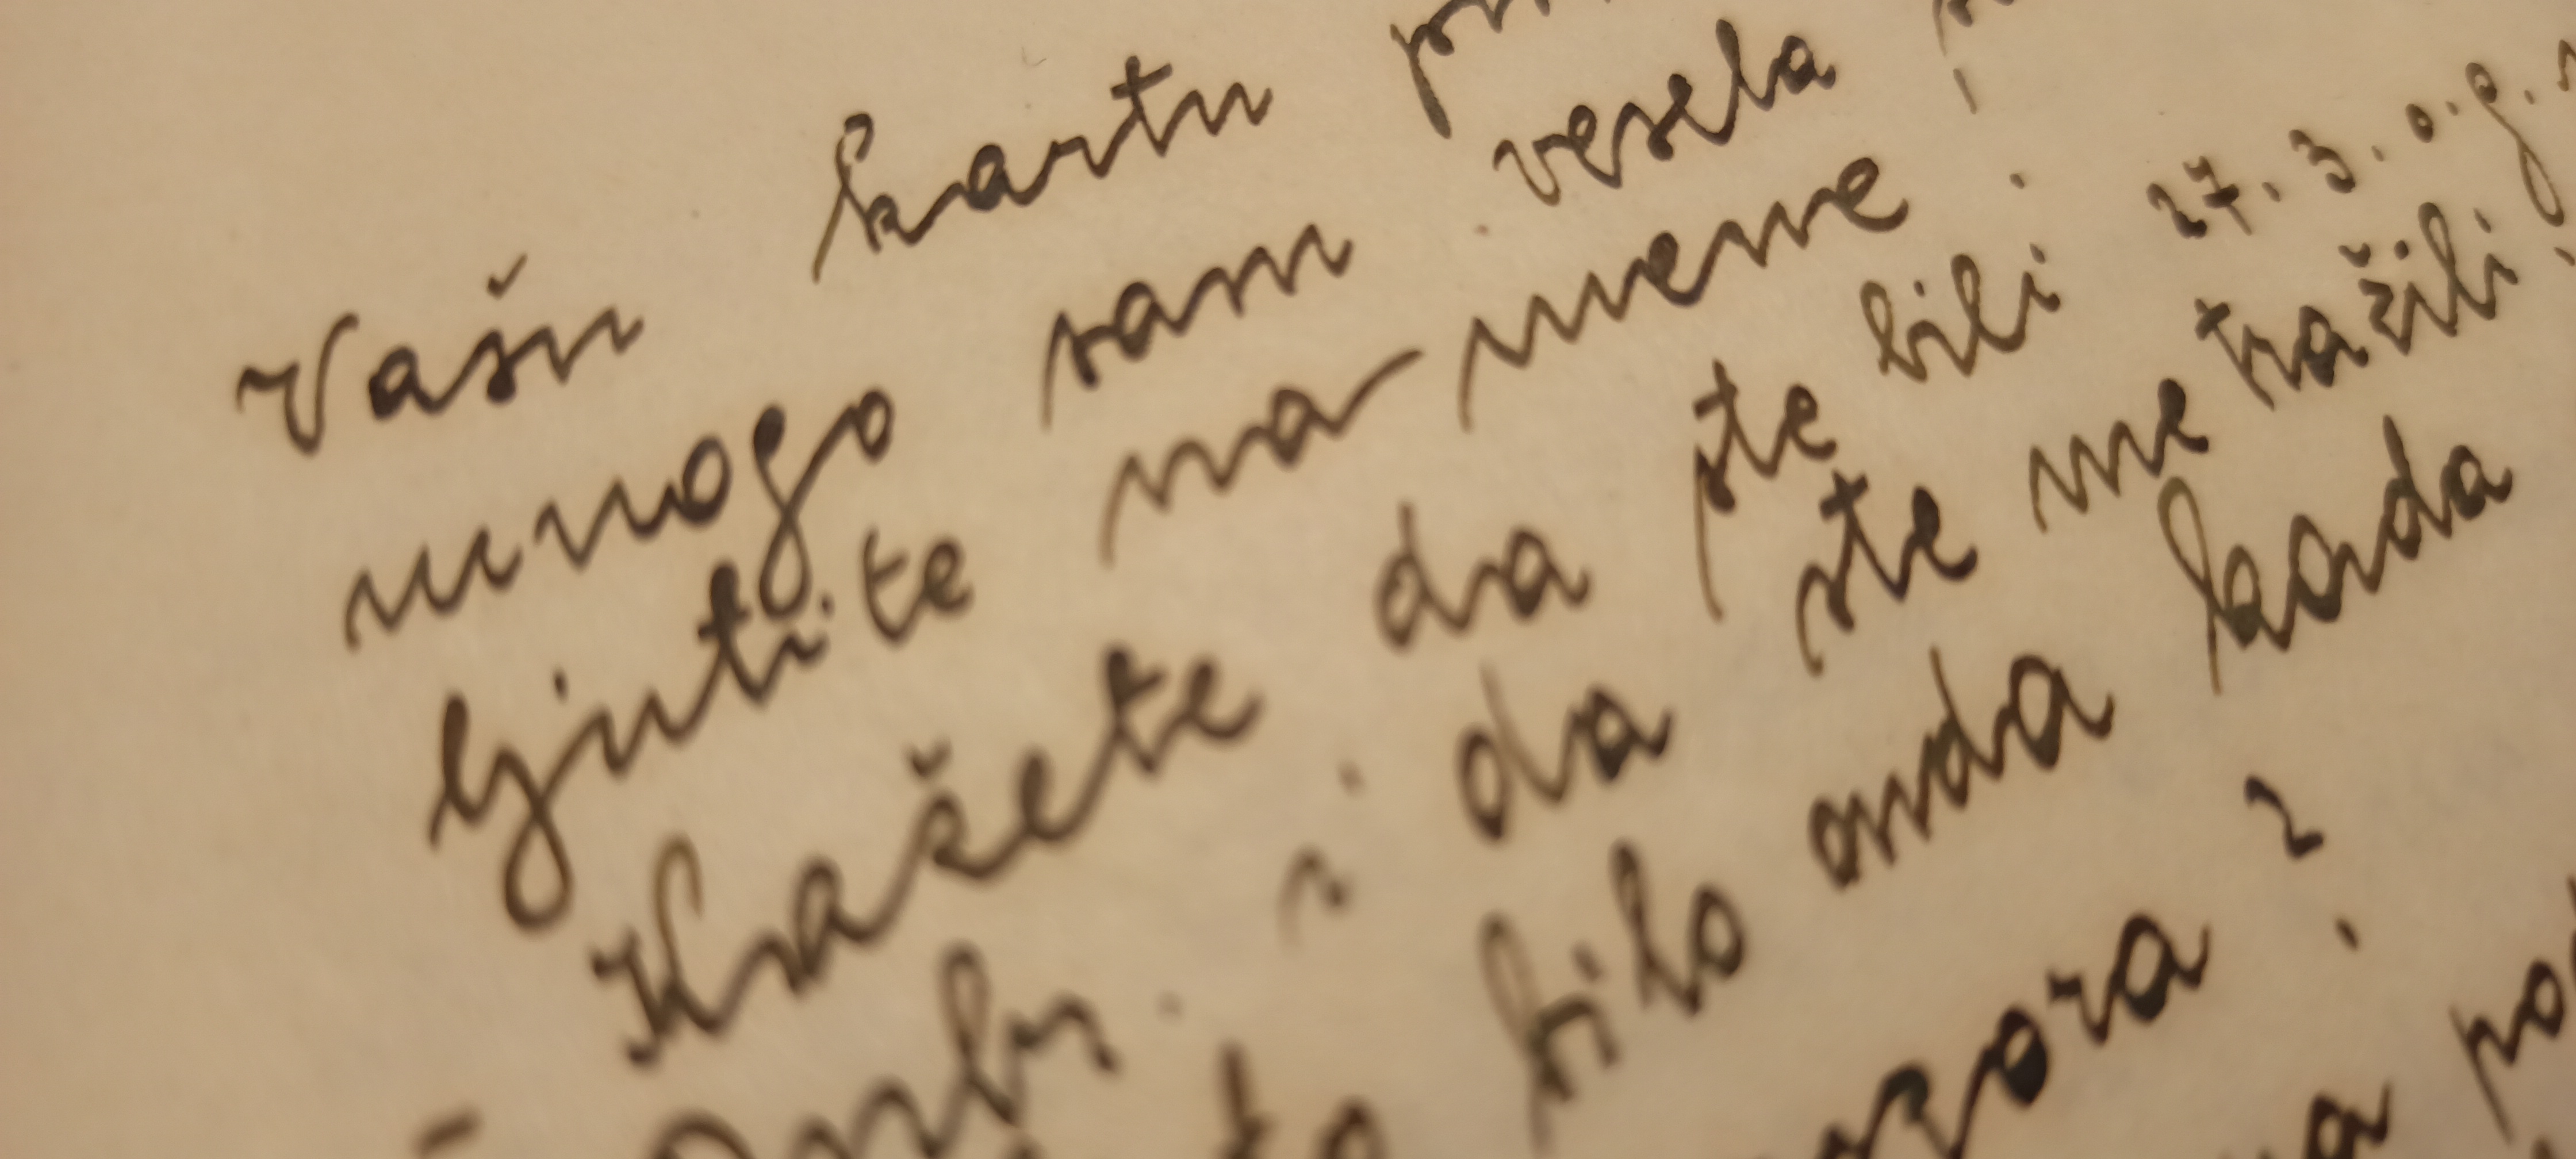 Vašu kartu
mnogo sam vesela
ljutite na mene.
Kažete da ste bili 27. 3. o.g.
i da ste me tražili
to bilo onda kada
?